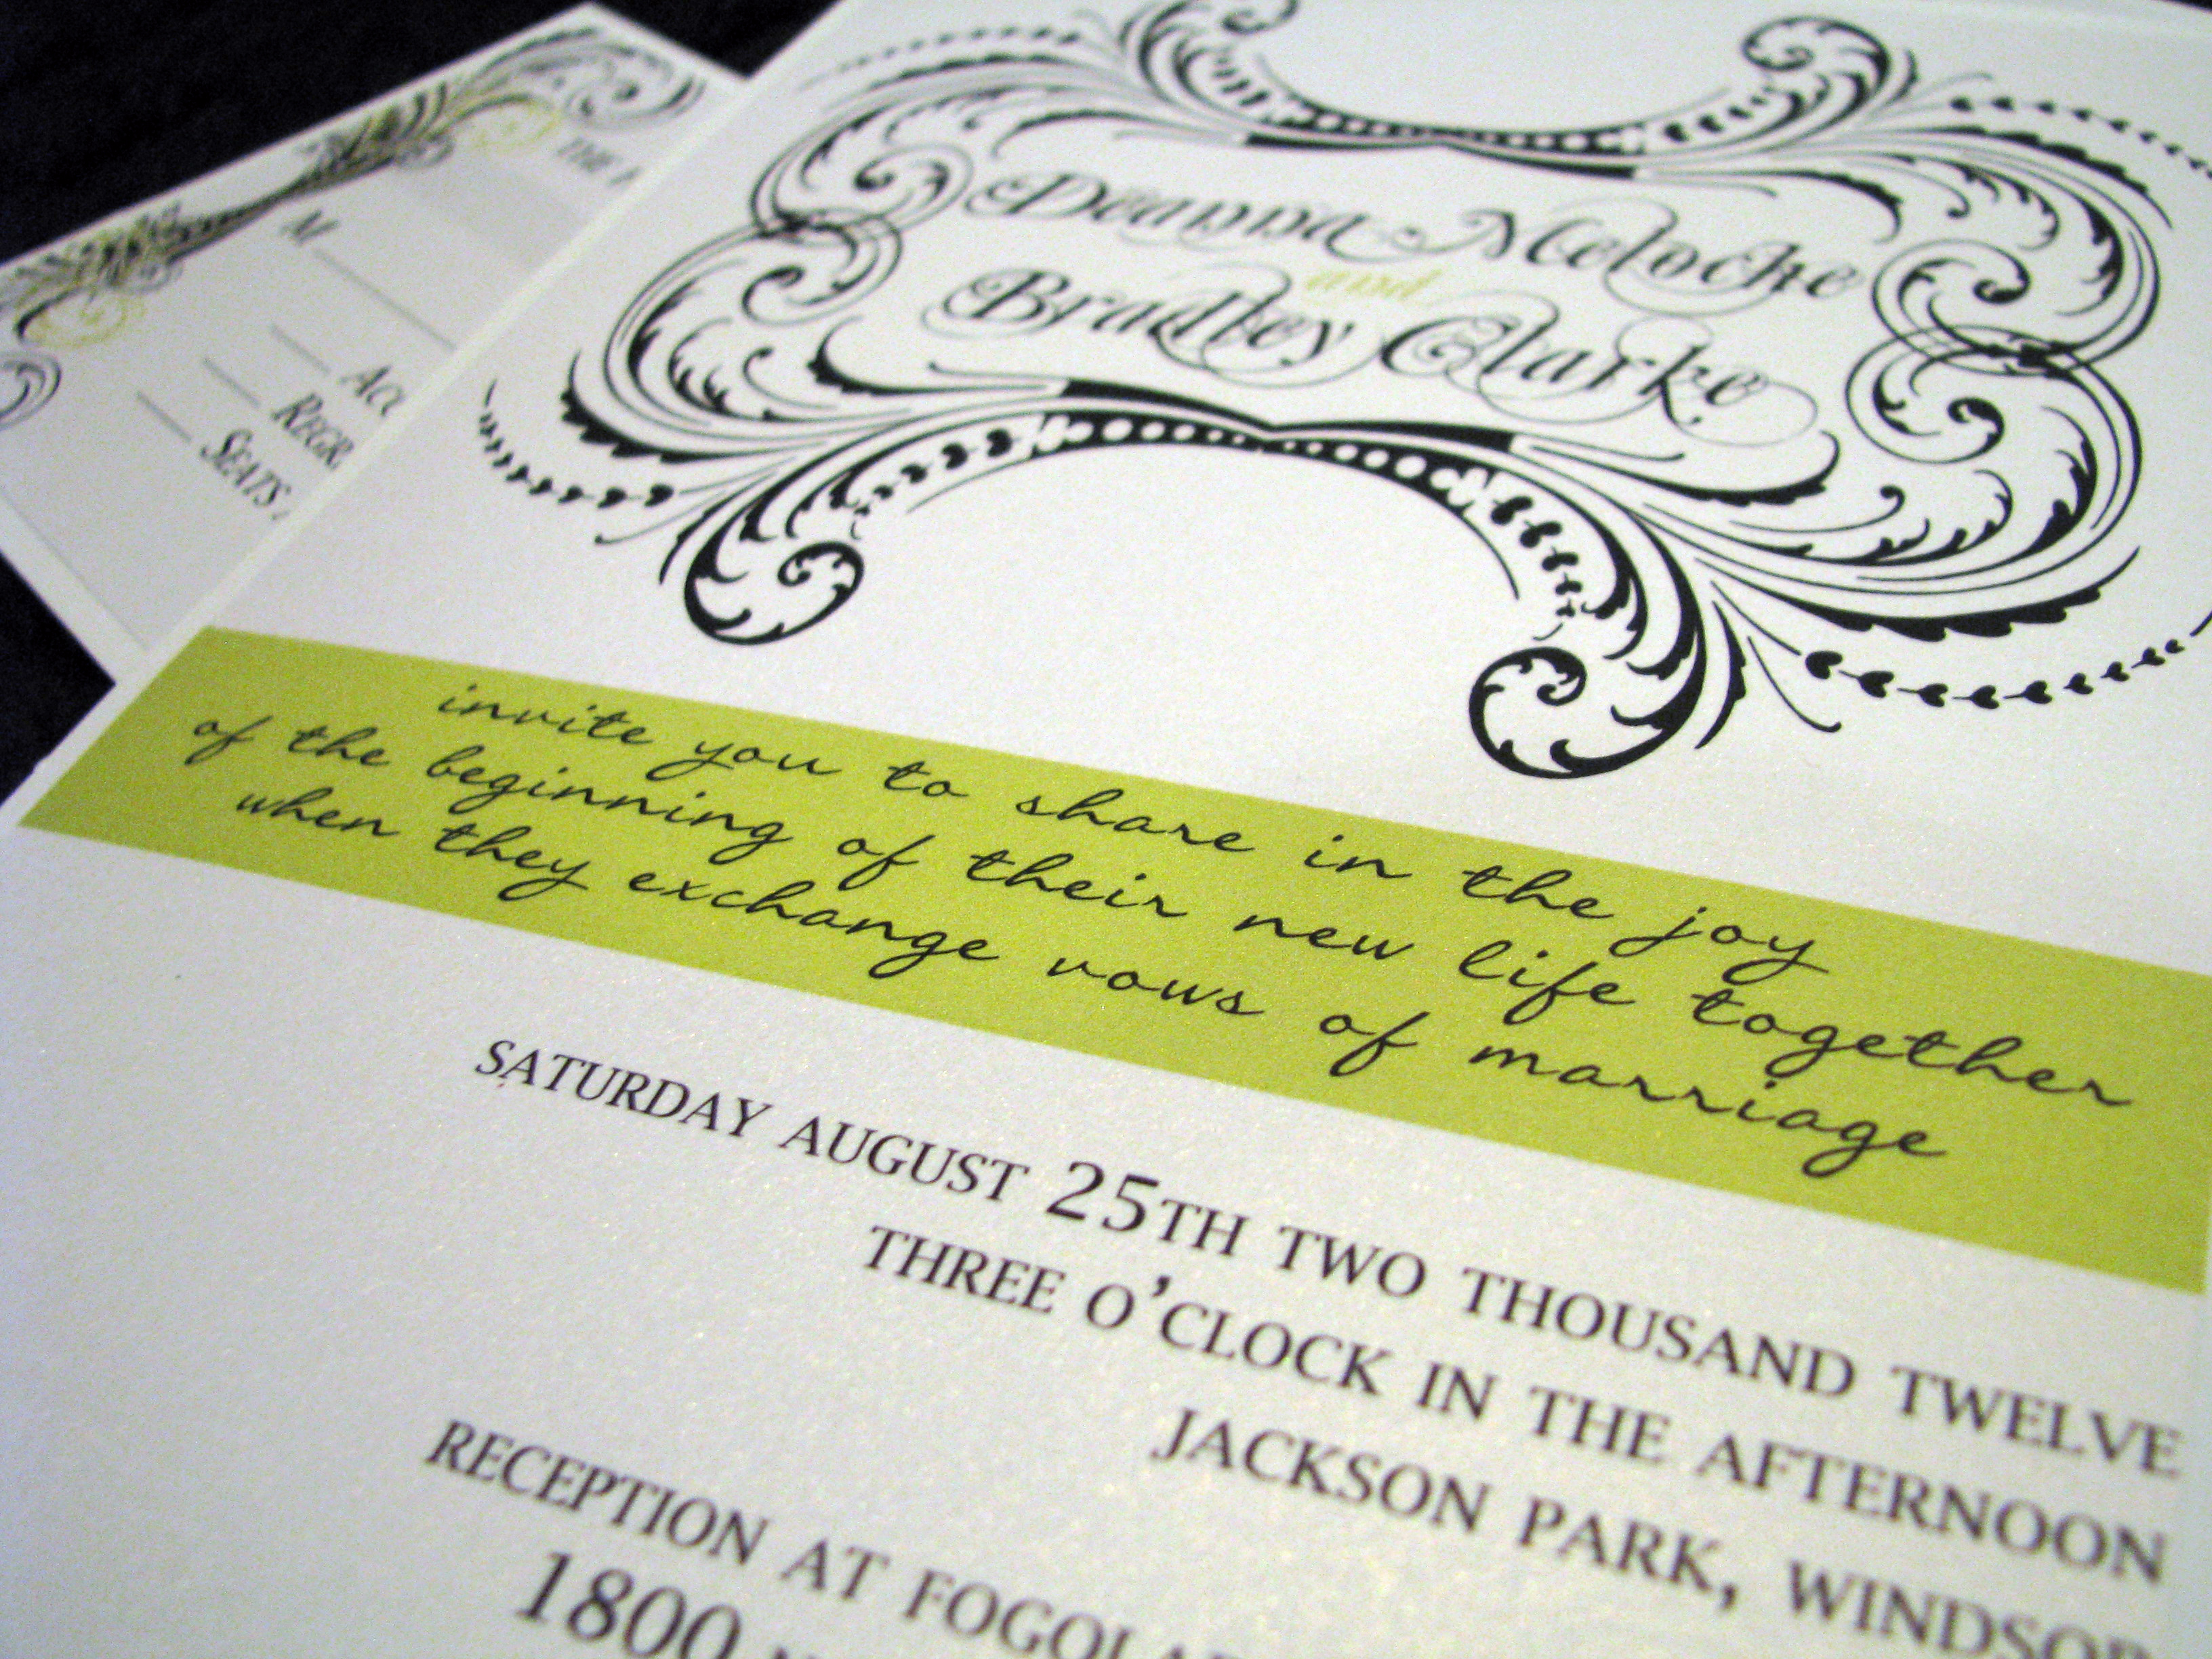 Deanna Meloche
and
Bradley Clarke
invite you to share in the joy
of the beginning of their new life together
when they exchange vows of marriage
SATURDAY AUGUST 25TH TWO THOUSAND TWELVE
THREE O'CLOCK IN THE AFTERNOON
JACKSON PARK, WINDSOR
RECEPTION AT
1800
M
SEATS